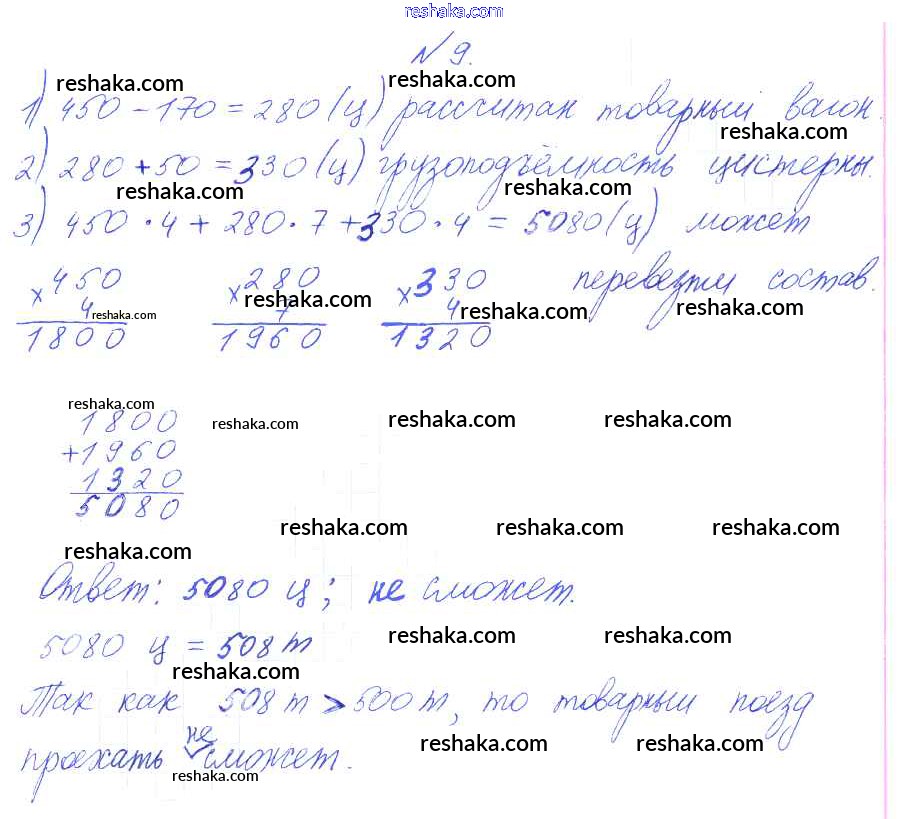 reshaka.com
№ 9.
reshaka.com reshaka.com
1) 450 - 170 = 280 (ц) рассчитан товарный вагон.
reshaka.com
2) 280 + 50 = 330 (ц) грузоподъёмность цистерны.
reshaka.com reshaka.com
3) 450 · 4 + 280 · 7 + 330 · 4 = 5080 (ц) может
перевезти состав.
× 450 × 280 × 330
reshaka.com
4 7 4
reshaka.com reshaka.com reshaka.com
1800 1960 1320
reshaka.com
1800
reshaka.com reshaka.com reshaka.com
+1960
1320
5080
reshaka.com reshaka.com reshaka.com
reshaka.com
Ответ: 5080 ц; не сможет.
5080 ц = 508 т
reshaka.com reshaka.com
reshaka.com
Так как 508 т > 500 т, то товарный поезд
проехать не сможет.
reshaka.com reshaka.com
reshaka.com